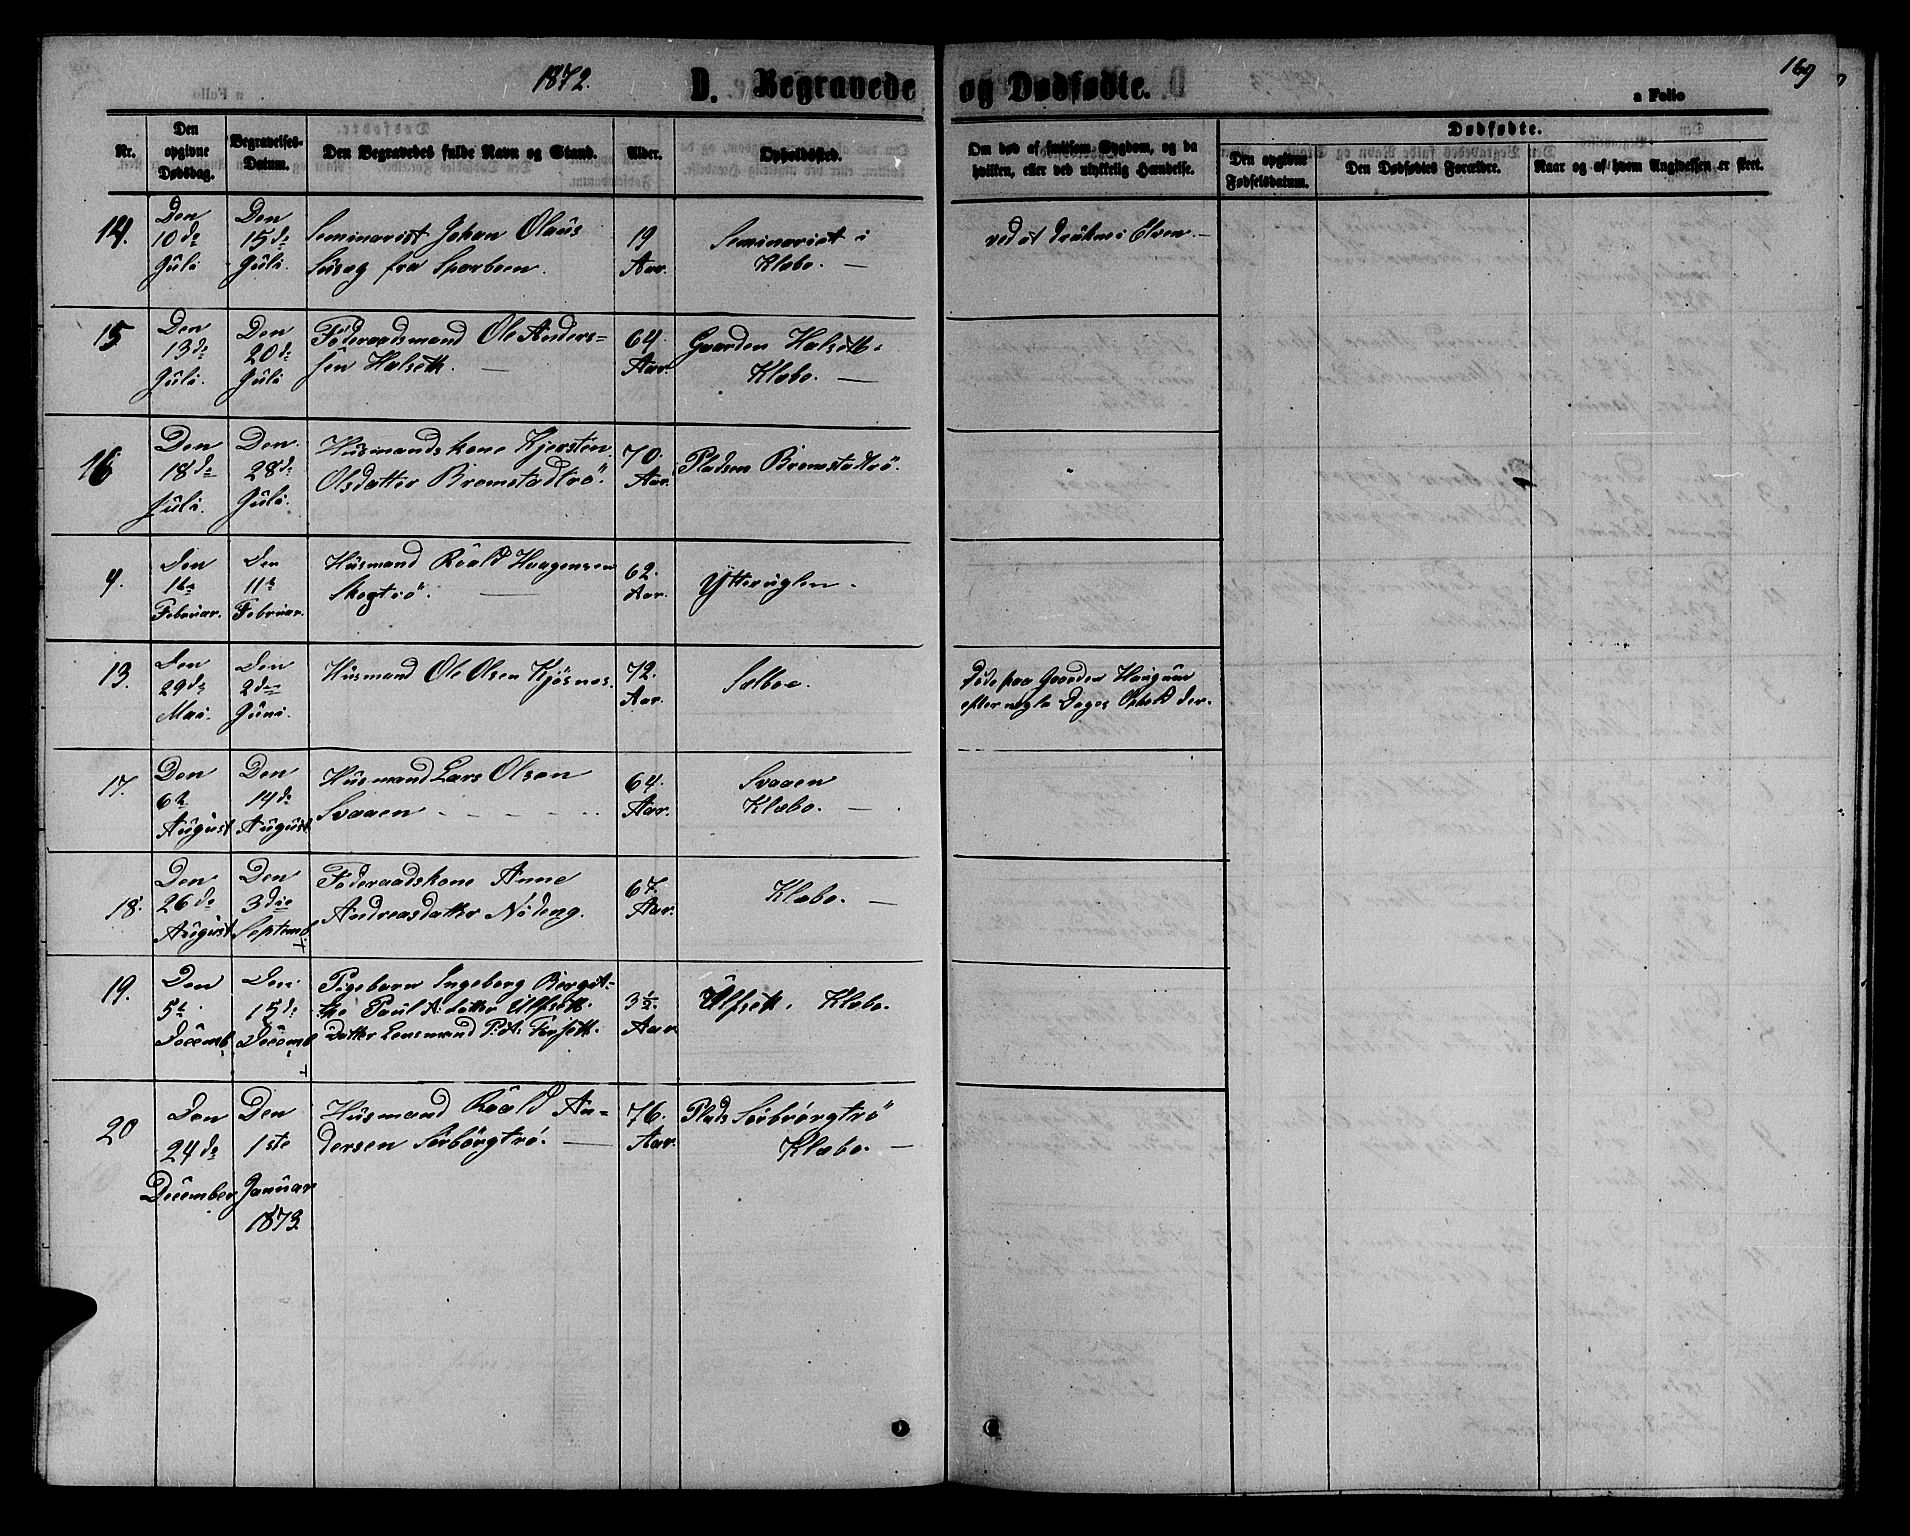 1872.
D. Begravede og Dødfødte.
169
a Folio
Nr.
Den opgivne Dødsdag.
Begravelses-Datum.
Den Begravedes fulde Navn og Stand.
Alder.
Opholdssted.
Om død af smitsom Sygdom, og da hvilken, eller ved ulykkelig Hændelse.
Dødfødte.
Den opgivne Fødselsdatum.
Den Dødfødtes Forældre.
Naar og af hvem Angivelsen er skeet.
14.
Den 10de Juli
Den 15de Juli.
Seminarist Johan Olaus
fra Sparboen.
19 Aar.
Seminariet i
Klæbo. —
ved at drukne i Elven. —
15
Den 13de Juli.
Den 20de Juli
Föderaadsmand Ole Anders=
sen Halseth. —
64 Aar.
Gaarden Halseth.
Klæbo. —
16
Den 18de Juli
Den 28de Juli.
Husmandskone Kjersten
Olsdatter Bromstadtrö.
70. Aar.
Pladsen Bromstadtrö.
4.
Den 16de Februar.
Den 11te Februar.
Husmand Roald Haagensen
Skogtrö. —
62. Aar.
Ytteruglen.
13.
Den 29de Mai.
Den 2den Juni.
Husmand Ole Olsen Kjösnes.
72. Aar.
Selboe.
Døde paa Gaarden Haugum
efter nogle Dages Ophold der.
17.
Den 6te August
Den 14de August
Husmand Lars Olsen
Svaaen
64. Aar.
Svaaen
Klæbo. —
18.
Den 26de August
Den 3die Septemb.
Föderaadskone Anne
Andreasdatter Nideng.
67. Aar.
Klæbo. —
19.
Den 5te Decemb.
Den 15de Decemb.
Pigebarn Ingeborg Bergit=
the Paul A. datter Ulfseth.
Datter Lensmand P. A. Forseth.
3½. Aar
Ulfseth. Klæbo.
20
Den 24de December
Den 1ste Januar 1873.
Husmand Roald An=
dersen Sörbörgtrö. —
76. Aar.
Plads Sörbrörgtrö
Klæbo. —